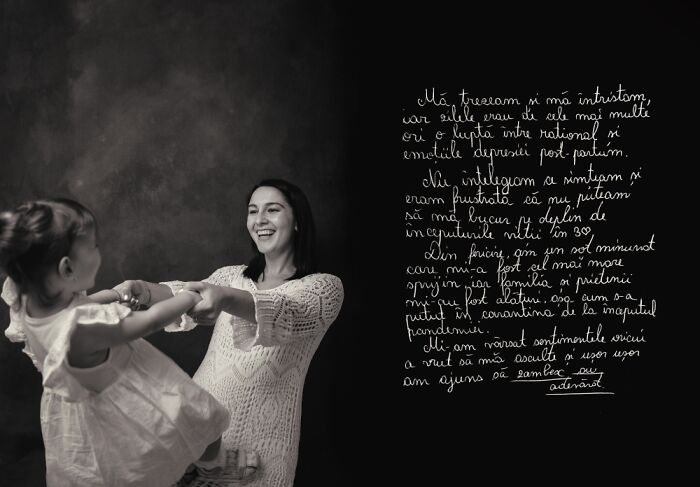 Mă trezeam și mă întristam,
iar zilele erau de cele mai multe
ori o luptă între rațional și
emoțiile depresiei post-partum.
Nu înțelegeam ce simțeam și
eram frustrată că nu puteam
să mă bucur pe deplin de
începuturile vieții în 3♡.
Din fericire, am un soț minunat
care mi-a fost cel mai mare
sprijin, iar familia și prietenii
mi-au fost alături, așa cum s-a
putut în carantina de la începutul
pandemiei.
Mi-am vărsat sentimentele oricui
a vrut să mă asculte și ușor ușor
am ajuns să zâmbesc cu
adevărat.